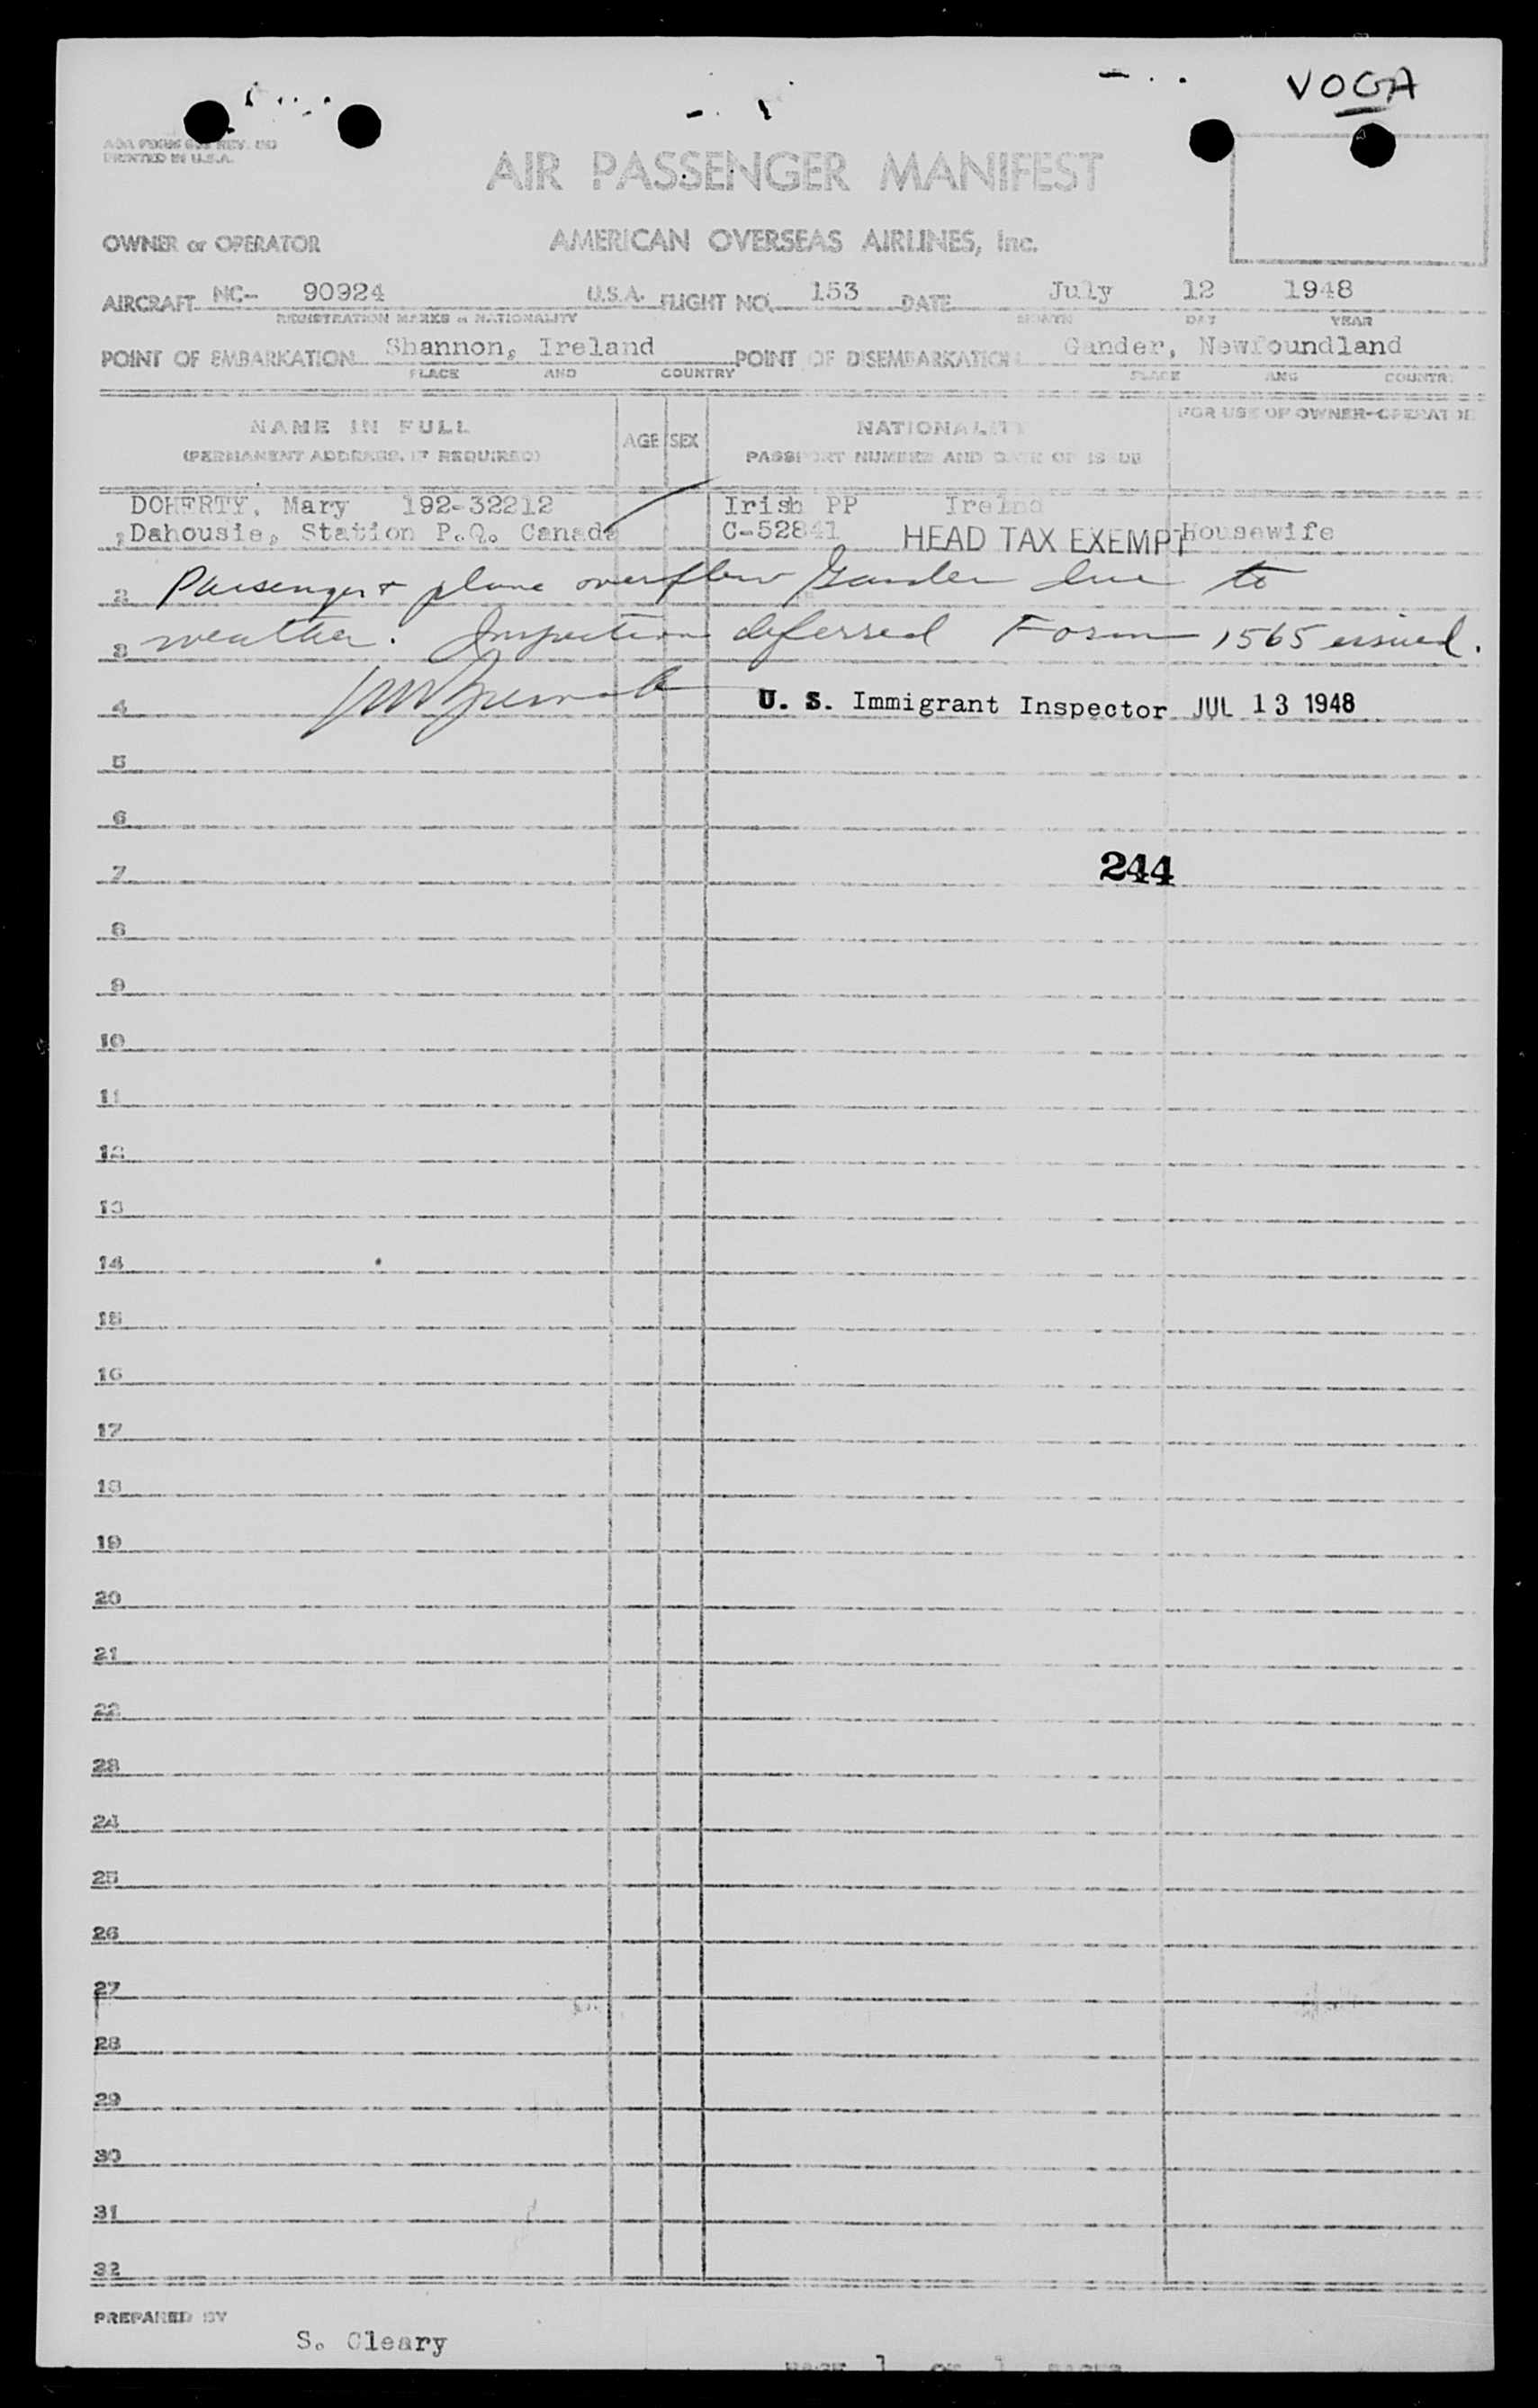 VOGA
PRINTED IN U.S.A.
AIR PASSENGER MANIFEST
OWNER or OPERATOR AMERICAN OVERSEAS AIRLINES, Inc.
AIRCRAFT NC- 90924 U.S.A. FLIGHT NO. 153 DATE July 12 1948
REGISTRATION MARKS & NATIONALITY MONTH DAY YEAR
POINT OF EMBARKATION Shannon, Ireland POINT OF DISEMBARKATION Gander, Newfoundland
PLACE AND COUNTRY PLACE AND COUNTRY
NAME IN FULL AGE SEX NATIONALITY FOR USE OF OWNER-OPERATOR
(PERMANENT ADDRESS, IF REQUIRED) PASSPORT NUMBER AND DATE OF ISSUE
DOHERTY, Mary 192-32212 Irish PP Irelnd
,Dahousie, Station P.Q. Canada C-52841 HEAD TAX EXEMPT Housewife
2 Passenger & plane overflew Gander due to
3 weather. Inspection deferred Form 1565 issued.
4 U. S. Immigrant Inspector JUL 13 1948
5
6
7 244
8
9
10
11
12
13
14
15
16
17
18
19
20
21
22
23
24
25
26
27
28
29
30
31
32
PREPARED BY
S. Cleary
PAGE 1 OF 1 PAGES